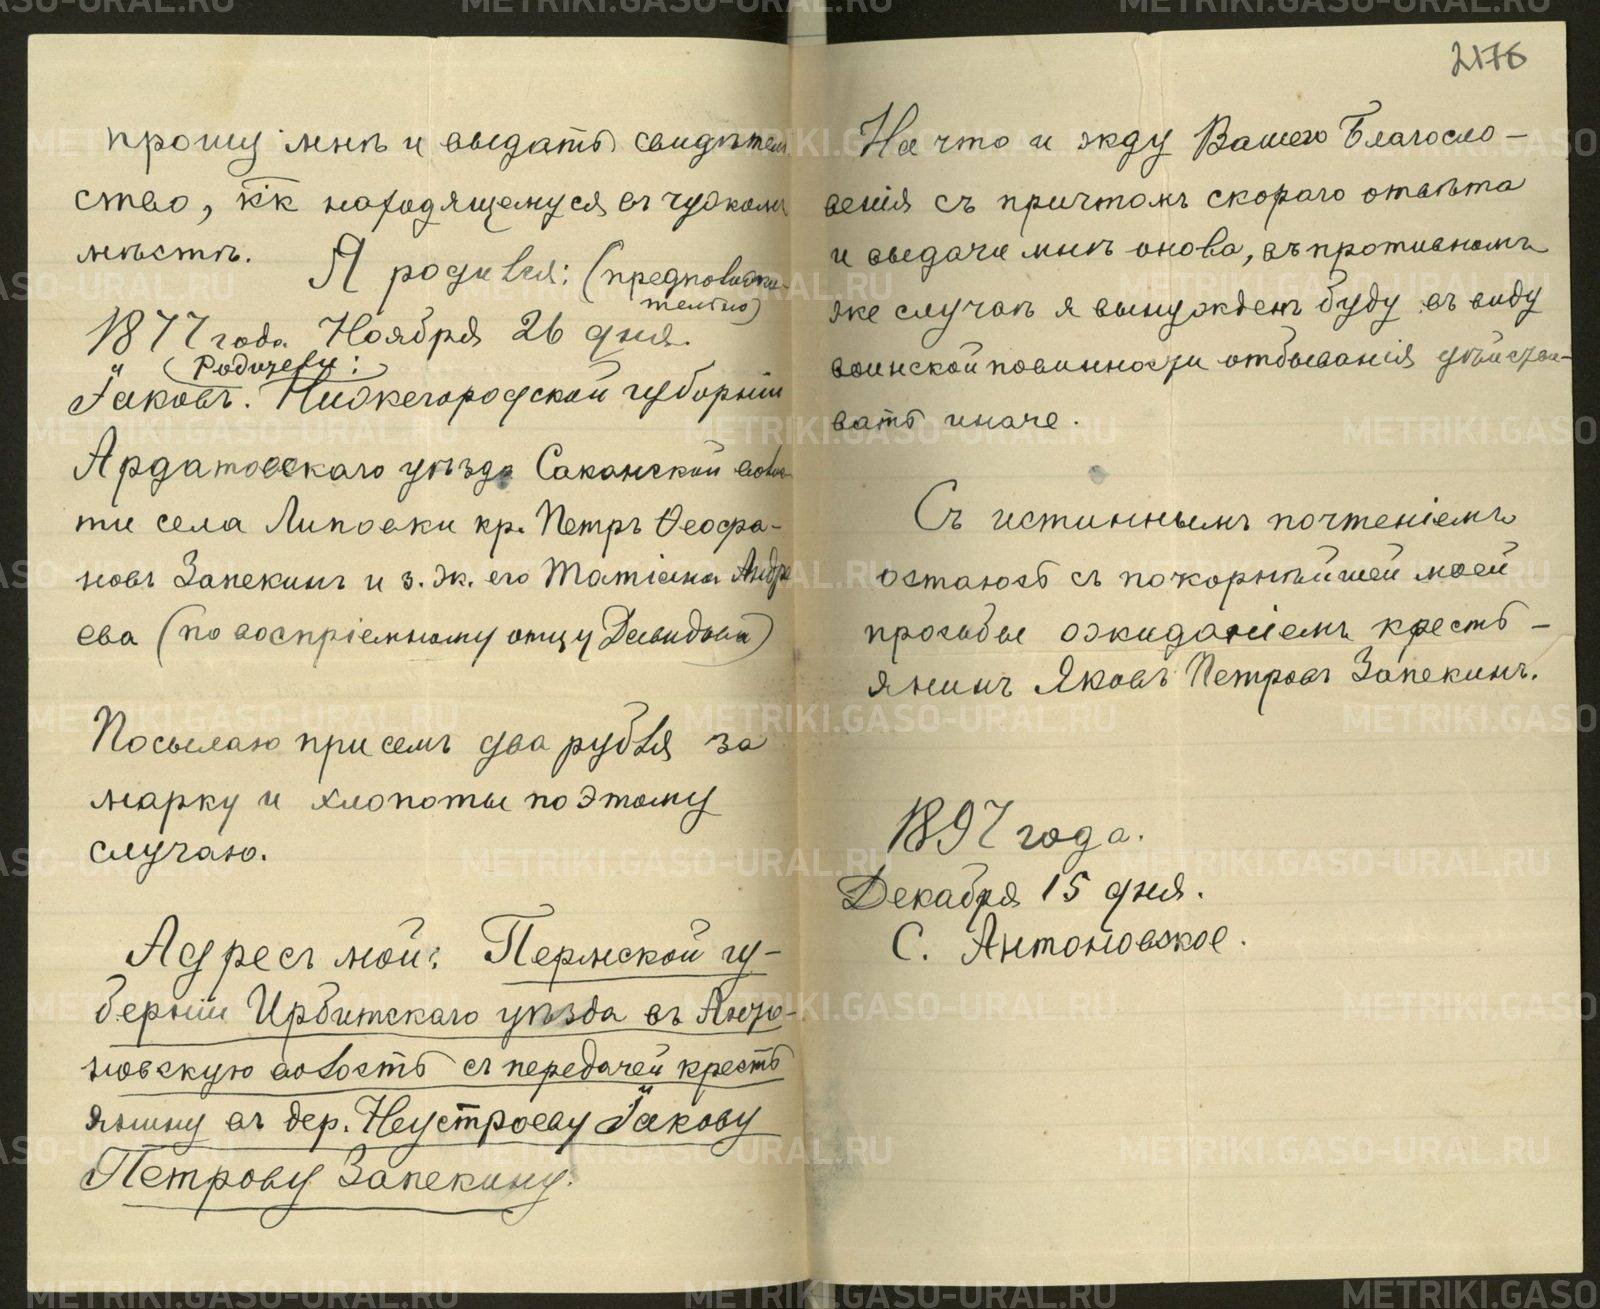 прошу мнѣ и выдать свидѣтель
ство, кк находящемуся въ чужомъ
мѣстѣ. Я родился: (предположи-
тельно)
1877 года Ноября 26 дня.
Родители:
Іаковъ. Нижегородской губерніи
Ардатовскаго уѣзда Саканской волос
ти села Липовки кр. Петръ Ѳеофа-
новъ Запекинъ и з. ж. его Татіана Андре
ева (по воспріемному отцу Давидова)
Посылаю при семъ два рубля за
марку и хлопоты по этому
случаю.
Адресъ мой: Пермской гу-
берніи Ирбитскаго уѣзда въ Анто-
новскую волость съ передачей кресть
янину въ дер. Неустроеву Іакову
Петрову Запекину.
2176
На что и жду Вашего Благосло-
венія съ причтомъ скораго отвѣта
и выдачи мнѣ онова, въ противномъ
же случаѣ я вынужденъ буду въ виду
воинской повинности отбыванія дѣйство-
вать иначе.
Съ истиннымъ почтеніемъ
остаюсь съ покорнѣйшей моей
прозьбы ожиданіемъ кресть-
янинъ Яковъ Петровъ Запекинъ.
1897 года.
Декабря 15 дня.
С. Антоновское.
METRIKI.GASO-URAL.RU